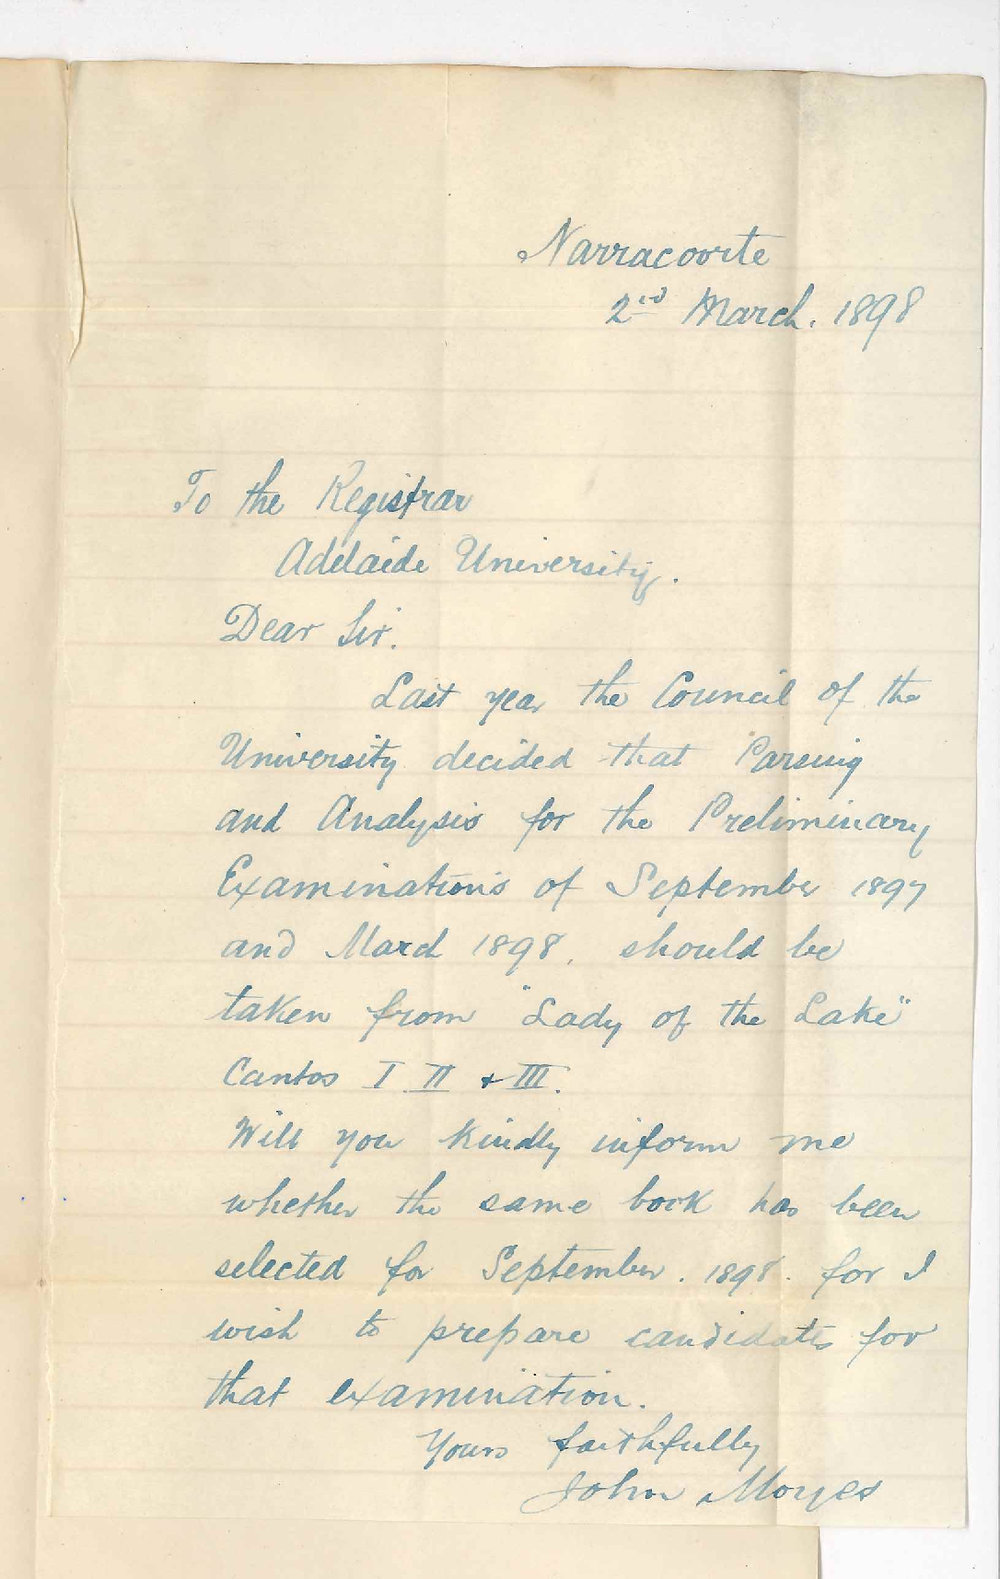 Narracoorte
2nd March. 1898
To the Registrar
Adelaide University.
Dear Sir.
Last year the Council of the
University decided that Parsing
and Analysis for the Preliminary
Examinations of September 1897
and March 1898, should be
taken from "Lady of the Lake"
Cantos I II & III.
Will you kindly inform me
whether the same book has been
selected for September. 1898. for I
wish to prepare candidates for
that examination.
Yours faithfully
John Moyes